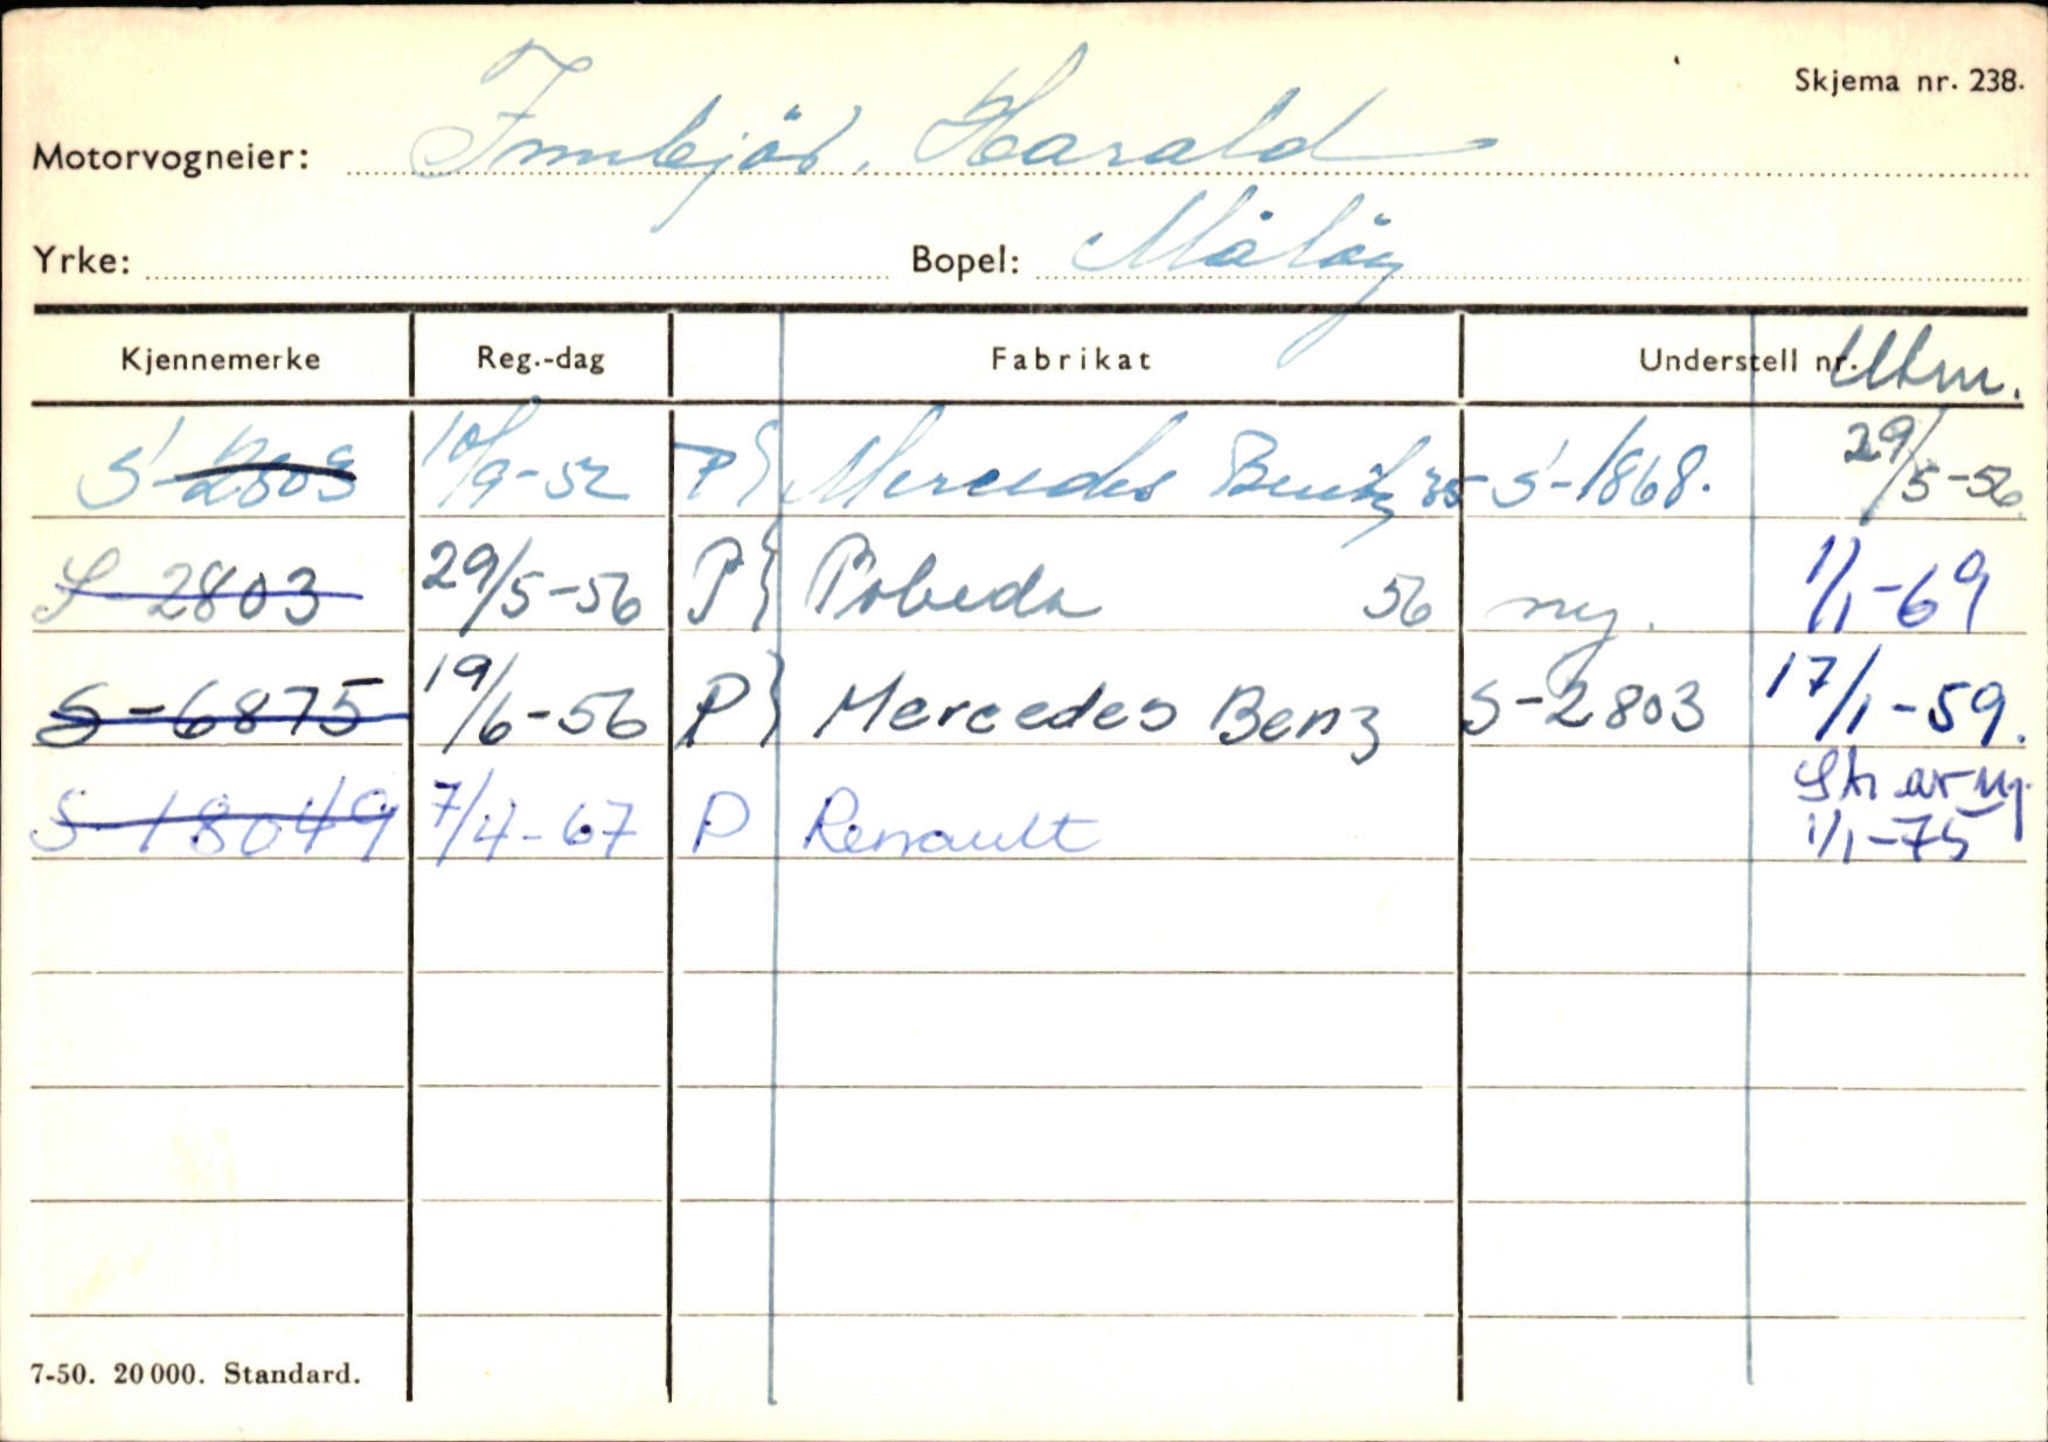 Skjema nr. 238.
Motorvogneier: Innbjör, Harald
Yrke: Bopel: Målöy
Kjennemerke Reg.-dag Fabrikat Understell nr. Utm.
S-2803 10/9-52 P Mercedes Bentz 35 S-1868. 29/5-56
S-2803 29/5-56 P Pobeda 56 ny. 1/1-69
S-6875 19/6-56 P Mercedes Benz S-2803 17/1-59.
S-18049 7/4-67 P Renault Str. avg. 1/1-75
7-50. 20 000. Standard.